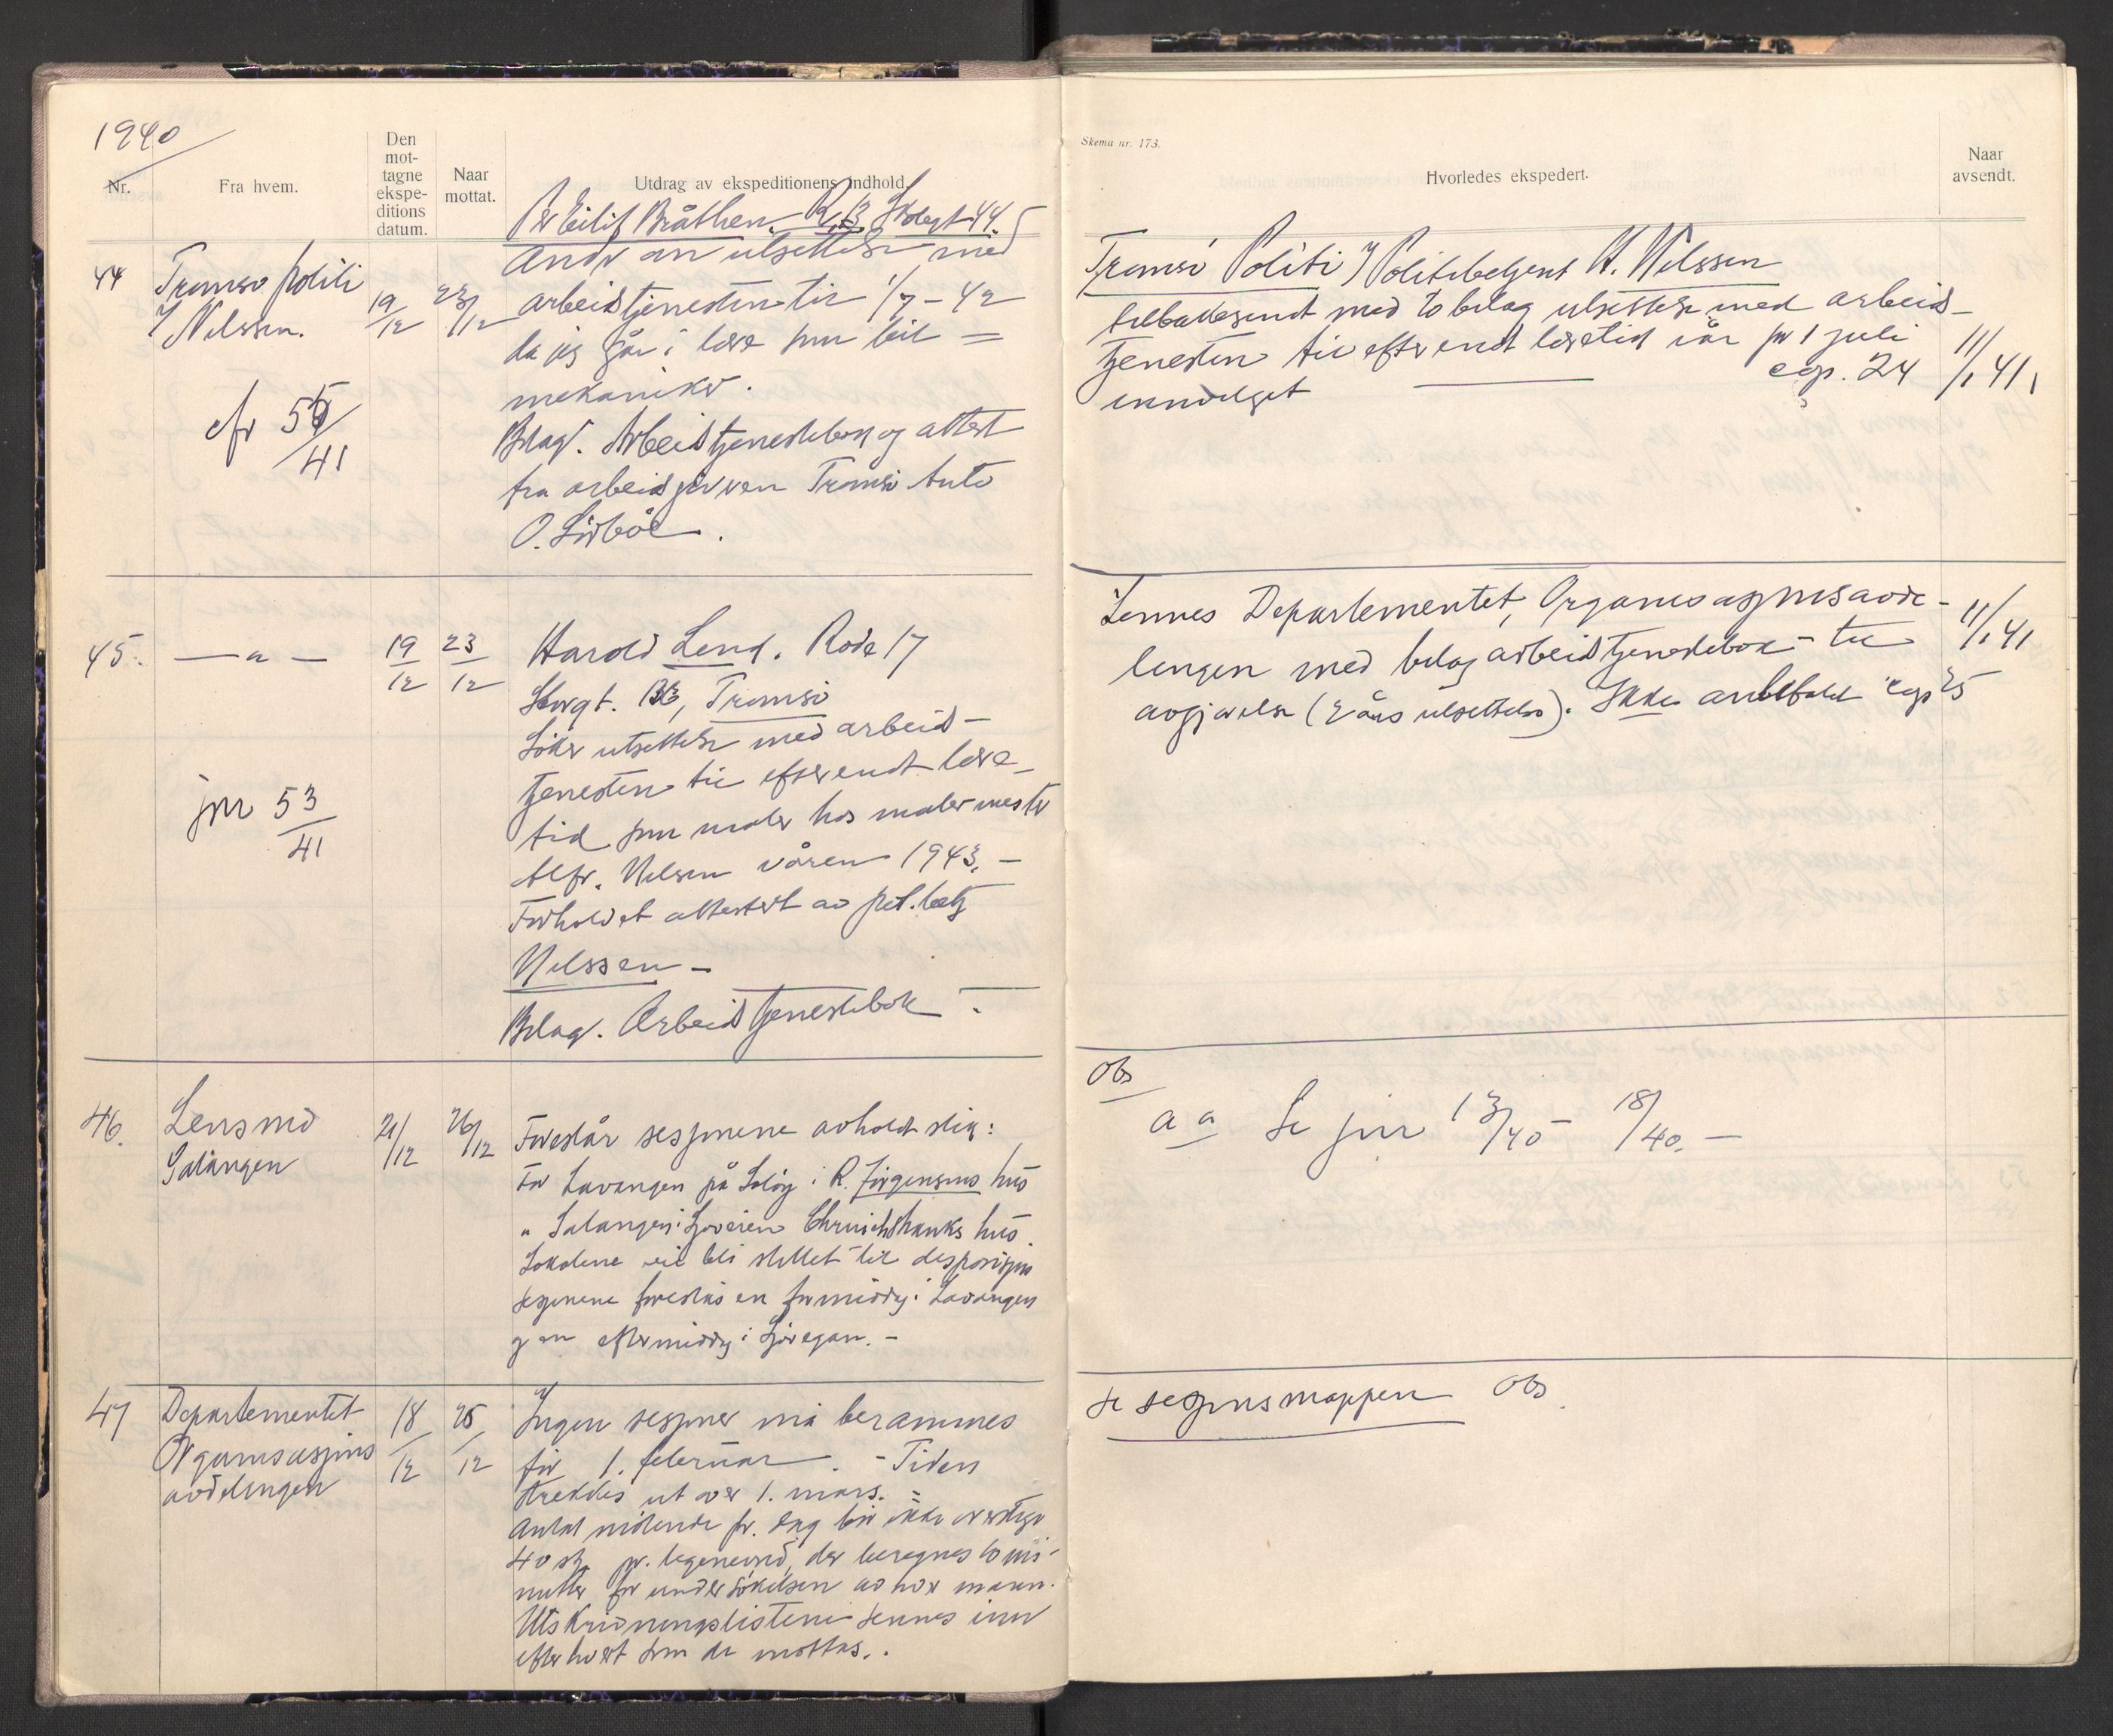 1940
Nr.
Fra hvem.
Den
mot-
tagne
ekspe-
ditions
datum.
Naar
mottat.
Utdrag av ekspeditionens indhold.
Per Eilif Bråthen. R.13 Skolegt 44.
44 Tromsø politi
19/12 23/12
V Nilssen.
Andr om utsettelse med
arbeidstjenesten til 1/7 - 42
da jeg går i lære som bil =
mekaniker.
Bilag. Arbeidstjenestebok og attest
fra arbeidsgiveren Tromsø Auto
O. Sørbøe.
cfr 55/41
45. — " — 19/12 23/12
Harold Lend. Rode 17
Storgt. 133, Tromsø
Søker utsettelse med arbeid-
tjenesten til efter endt lære-
tid som maler hos malermester
Alfr. Nilsen våren 1943. -
Forholdet attestert av pol.betj
Nilssen -
Bilag. Arbeidstjenestebok -.
jnr 53/41
46. Lensmd
Salangen
21/12 26/12
Foreslår sesjonene avholdt slik:
For Lavangen på Soløy i R. Jørgensens hus
" Salangen: Sjøveien hus
Lokalene vil bli stillet til disposisjon
Sesjonene foreslås en formiddg i Lavangen
og en eftermiddg i Sjøvegan. -
47 Departementet
Organisasjons
avdelingen
18/12 25/12
Ingen sesjoner må berammes
før 1. februar. - Tiden
strekkes ut over 1. mars. =
Antal møtende pr. dag bør ikke overstige
40 stk. pr. legenevnd, der beregnes 10 mi-
nutter for undersøkelsen av hver mann.
Utskrivningslistene sennes inn
efterhvert som de mottas..
Skema nr. 173.
Hvorledes ekspedert.
Naar
avsendt.
Tromsø Politi V Politibetjent H. Nilssen
tilbakesendt med to bilag utsettelse med arbeids-
tjenesten til efter endt læretid iår pr 1 juli
innvilget
exp. 24 11/1 41,
Sennes Departementet, Organisasjonsavde-
lingen med bilag arbeidstjenestebok - til
avgjørelse (2 års utsettelse). Ikke anbefalt exp 25
11/1 41
Obs
a a Se jnr 13/40 - 18/40. -
Se sesjonsmappen Obs.